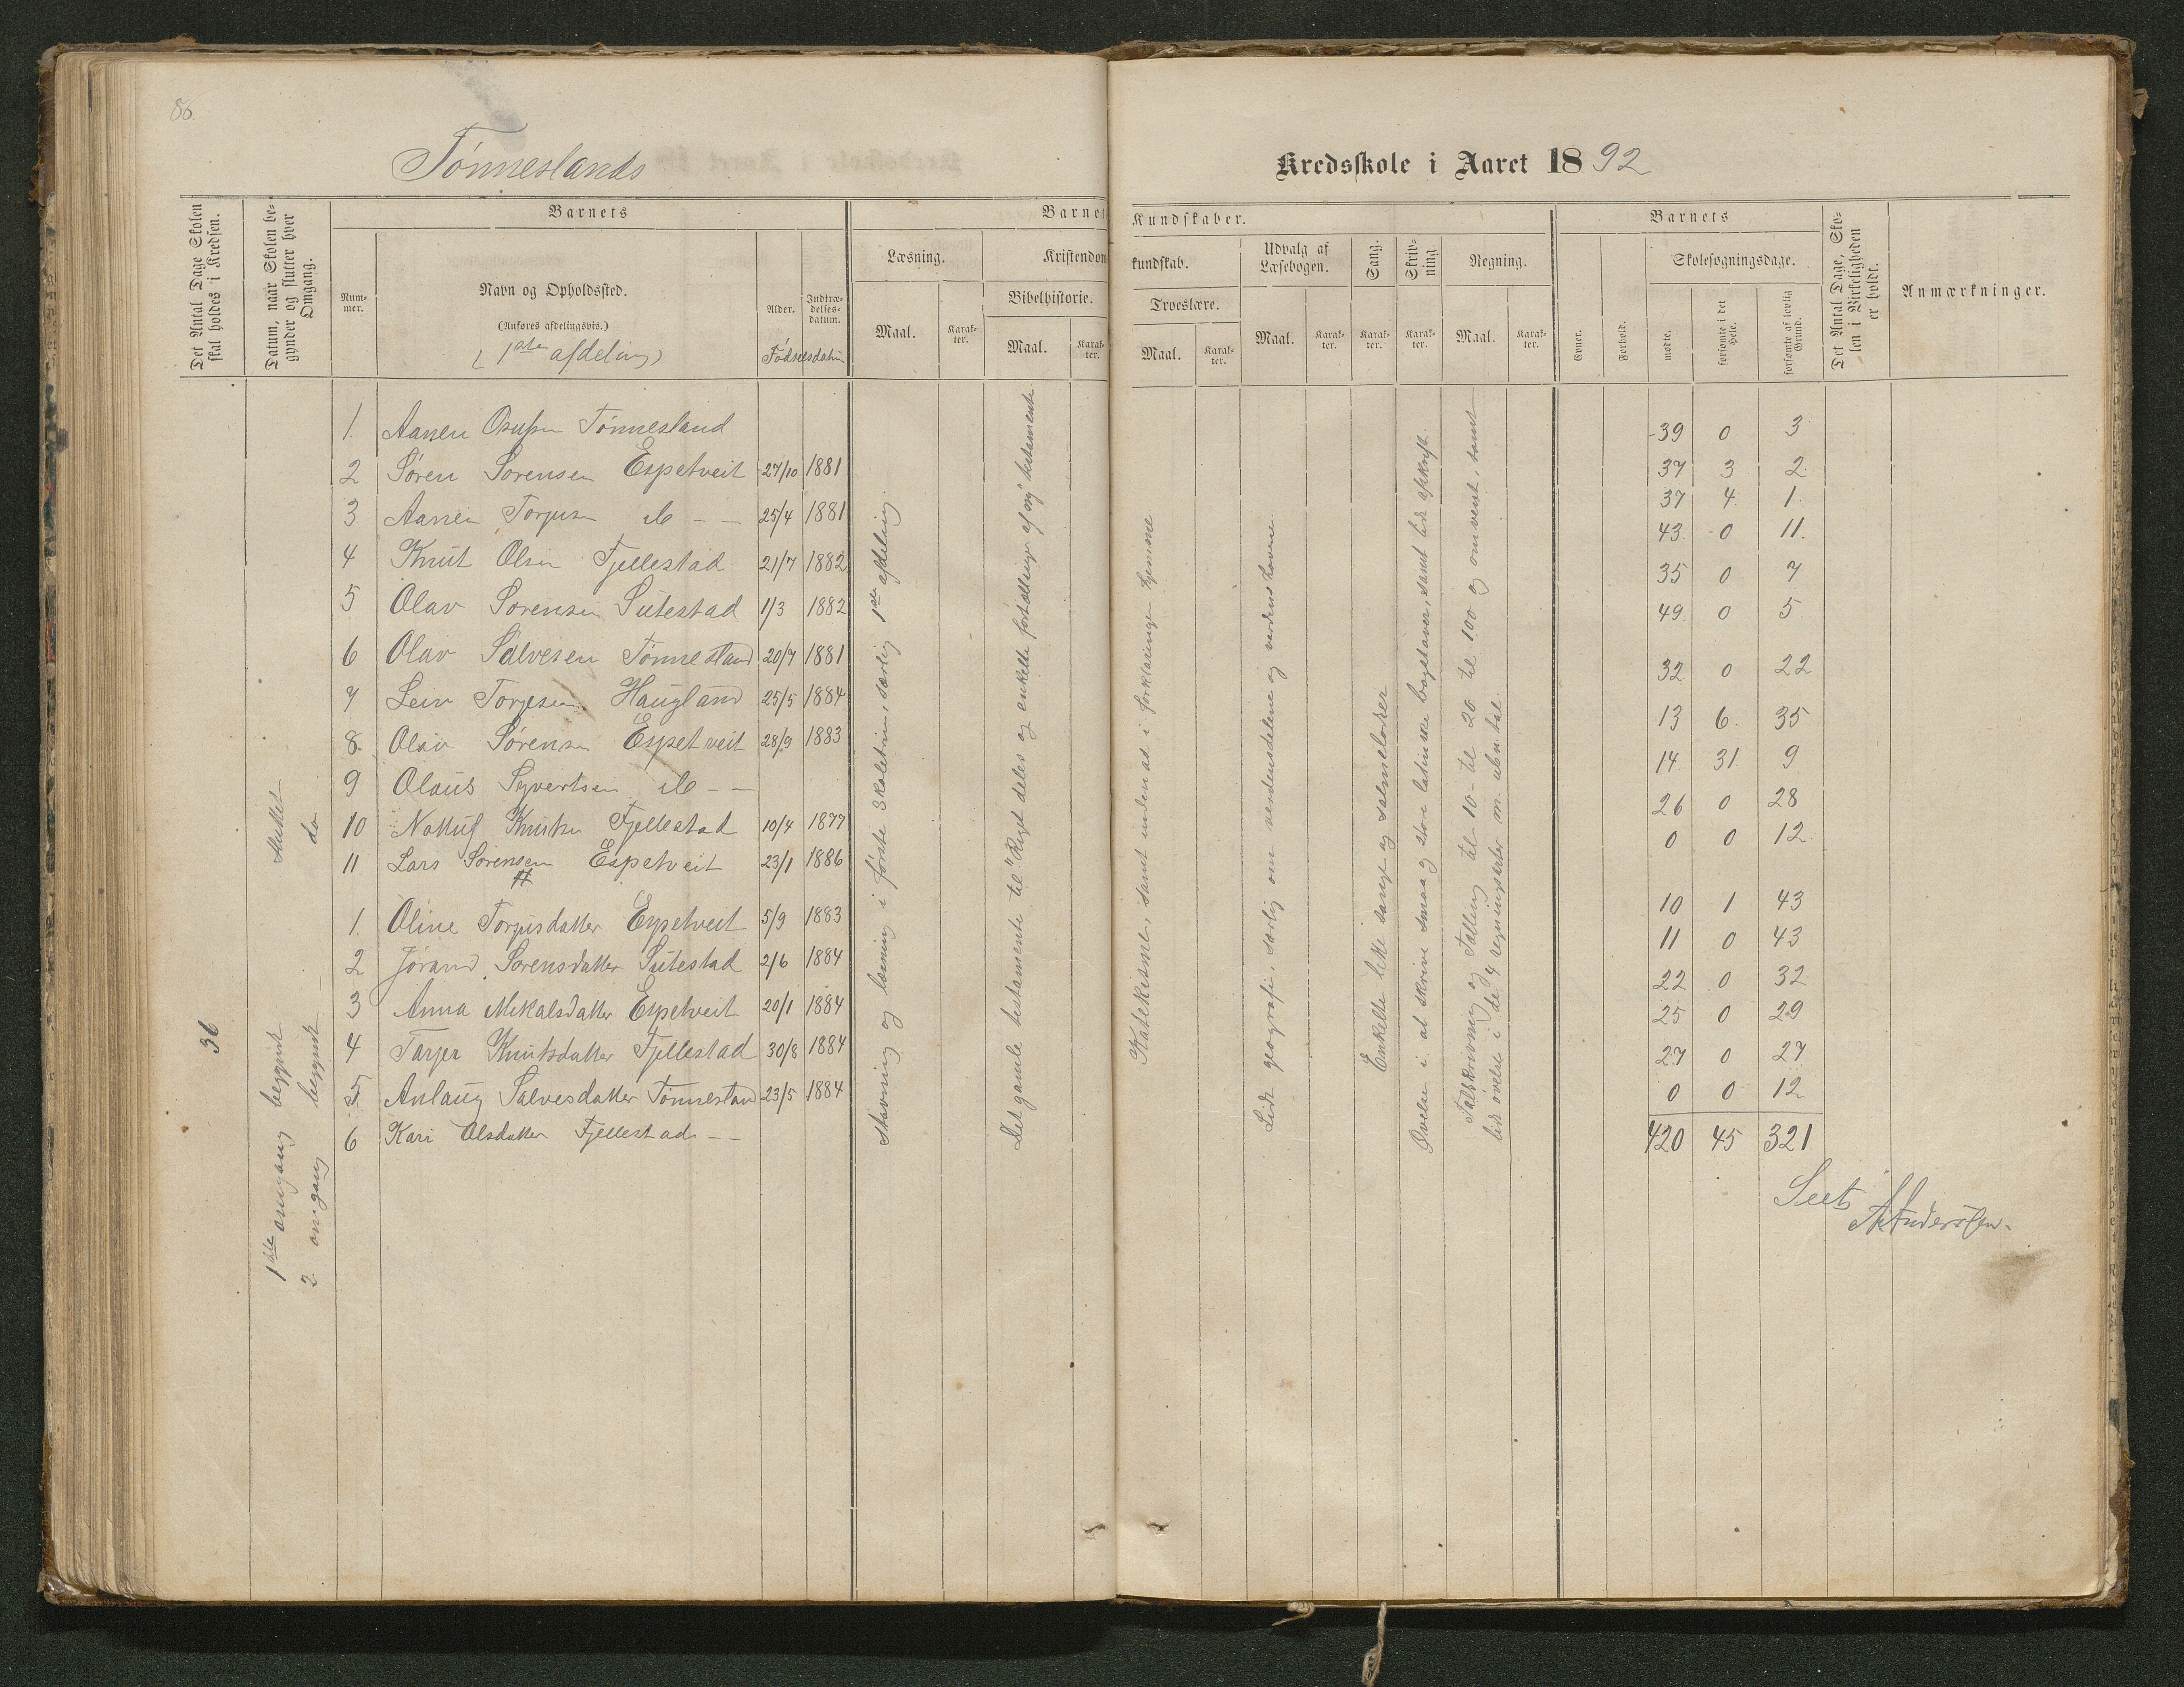 86.
Tønneslands
Kredsskole i Aaret 1892
Det Antal Dage Skolen skal holdes i Kredsen.
Datum, naar Skolen begynder og slutter hver Omgang.
Barnets
Nummer.
Navn og Opholdssted.
(Anføres afdelingsvis.)
(1ste afdeling)
Alder.
Indtrædelsesdatum.
Fødselsdatum
Barnets Kundskaber.
Læsning.
Maal.
Karakter.
Kristendomskundskab.
Bibelhistorie.
Maal.
Karakter.
Troeslære.
Maal.
Karakter.
Udvalg af Læsebogen.
Maal.
Karakter.
Sang.
Karakter.
Skrivning.
Karakter.
Regning.
Maal.
Karakter.
Barnets
Evner.
Forhold.
Skolesøgningsdage.
mødte.
forsømte i det Hele.
forsømte af lovlig Grund.
Det Antal Dage, Skolen i Virkeligheden er holdt.
Anmærkninger.
36
1ste omgang begyndt sluttet
2 omgang begyndt do
1. Aanen Osufsen Tønnesland
2 Søren Sørensen Espetveit 27/10 1881
3 Aanen Torjusen do - - 25/4 1881
4 Knut Olsen Fjellestad 21/7 1882
5 Olav Sørensen Sutestad 1/3 1882
6 Olav Salvesen Tønnesland 20/7 1881
7 Leiv Torjesen Haugland 25/5 1884
8. Olav Sørensen Espetveit 28/9 1883
9 Olaus Syvertsen do - -
10 Knutsen Fjellestad 10/4 1877
11 Lars Sørensen Espetveit 23/1 1886
1. Oline Torjusdatter Espetveit 5/9 1883
2 Jørand Sørensdatter Sutestad 2/6 1884
3 Anna Mikalsdatter Espetveit 20/1 1884
4 Tarjer Knutsdatter Fjellestad 30/8 1884
5 Anlaug Salvesdatter Tønnesland 23/5 1884
6 Kari Olsdatter Fjellestad - -
Stavning og læsning i første skoletrin, særlig 1ste afdeling.
Det gamle testamente til "Riget deles og enkelte fortællinger af ny testamente
Katekismen, samt undenad i forklaringen hjemme
Lidt geografi, særlig om verdensdelene og verdens havene.
Enkelte lette sange og salmetoner
Øvelse i at skrive smaa og store latinske bogstaver, samt lidt afskrift.
Talskrivning og Tælling til 10 - til 20 til 100 og omvent, samt
lidt øvelse i de 4 regningsarter m. ubn. tal.
39 0 3
37 3 2
37 4 1.
43 0 11.
35 0 7
49 0 5
32 0 22
13 6. 35
14 31 9
26 0 28
0 0 12
10 1 43
11 0 43
22 0 32
25 0 29
27 0 27
0 0 12
420 45 321
Seet
A Anderssen.